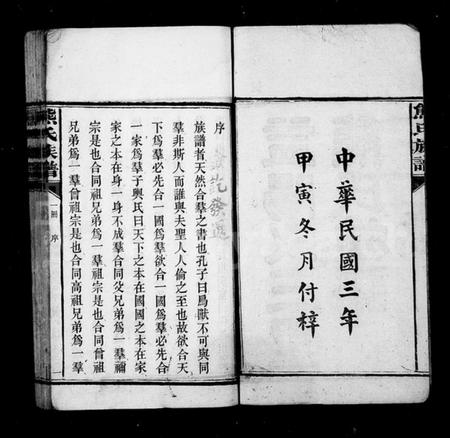 熊氏族譜
中華民國三年
甲寅冬月付梓
序
族譜者天然合羣之書也孔子曰鳥獸不可與同
羣非斯人而誰與夫聖人人倫之至也故欲合天
下為羣必先合一國為羣欲合一國為羣必先合
一家為羣子輿氏曰天下之本在國國之本在家
家之本在身一身不成羣合同父兄弟為一羣禰
宗是也合同祖兄弟為一羣祖宗是也合同曾祖
兄弟為一羣曾祖宗是也合同高祖兄弟為一羣
熊氏族譜
序